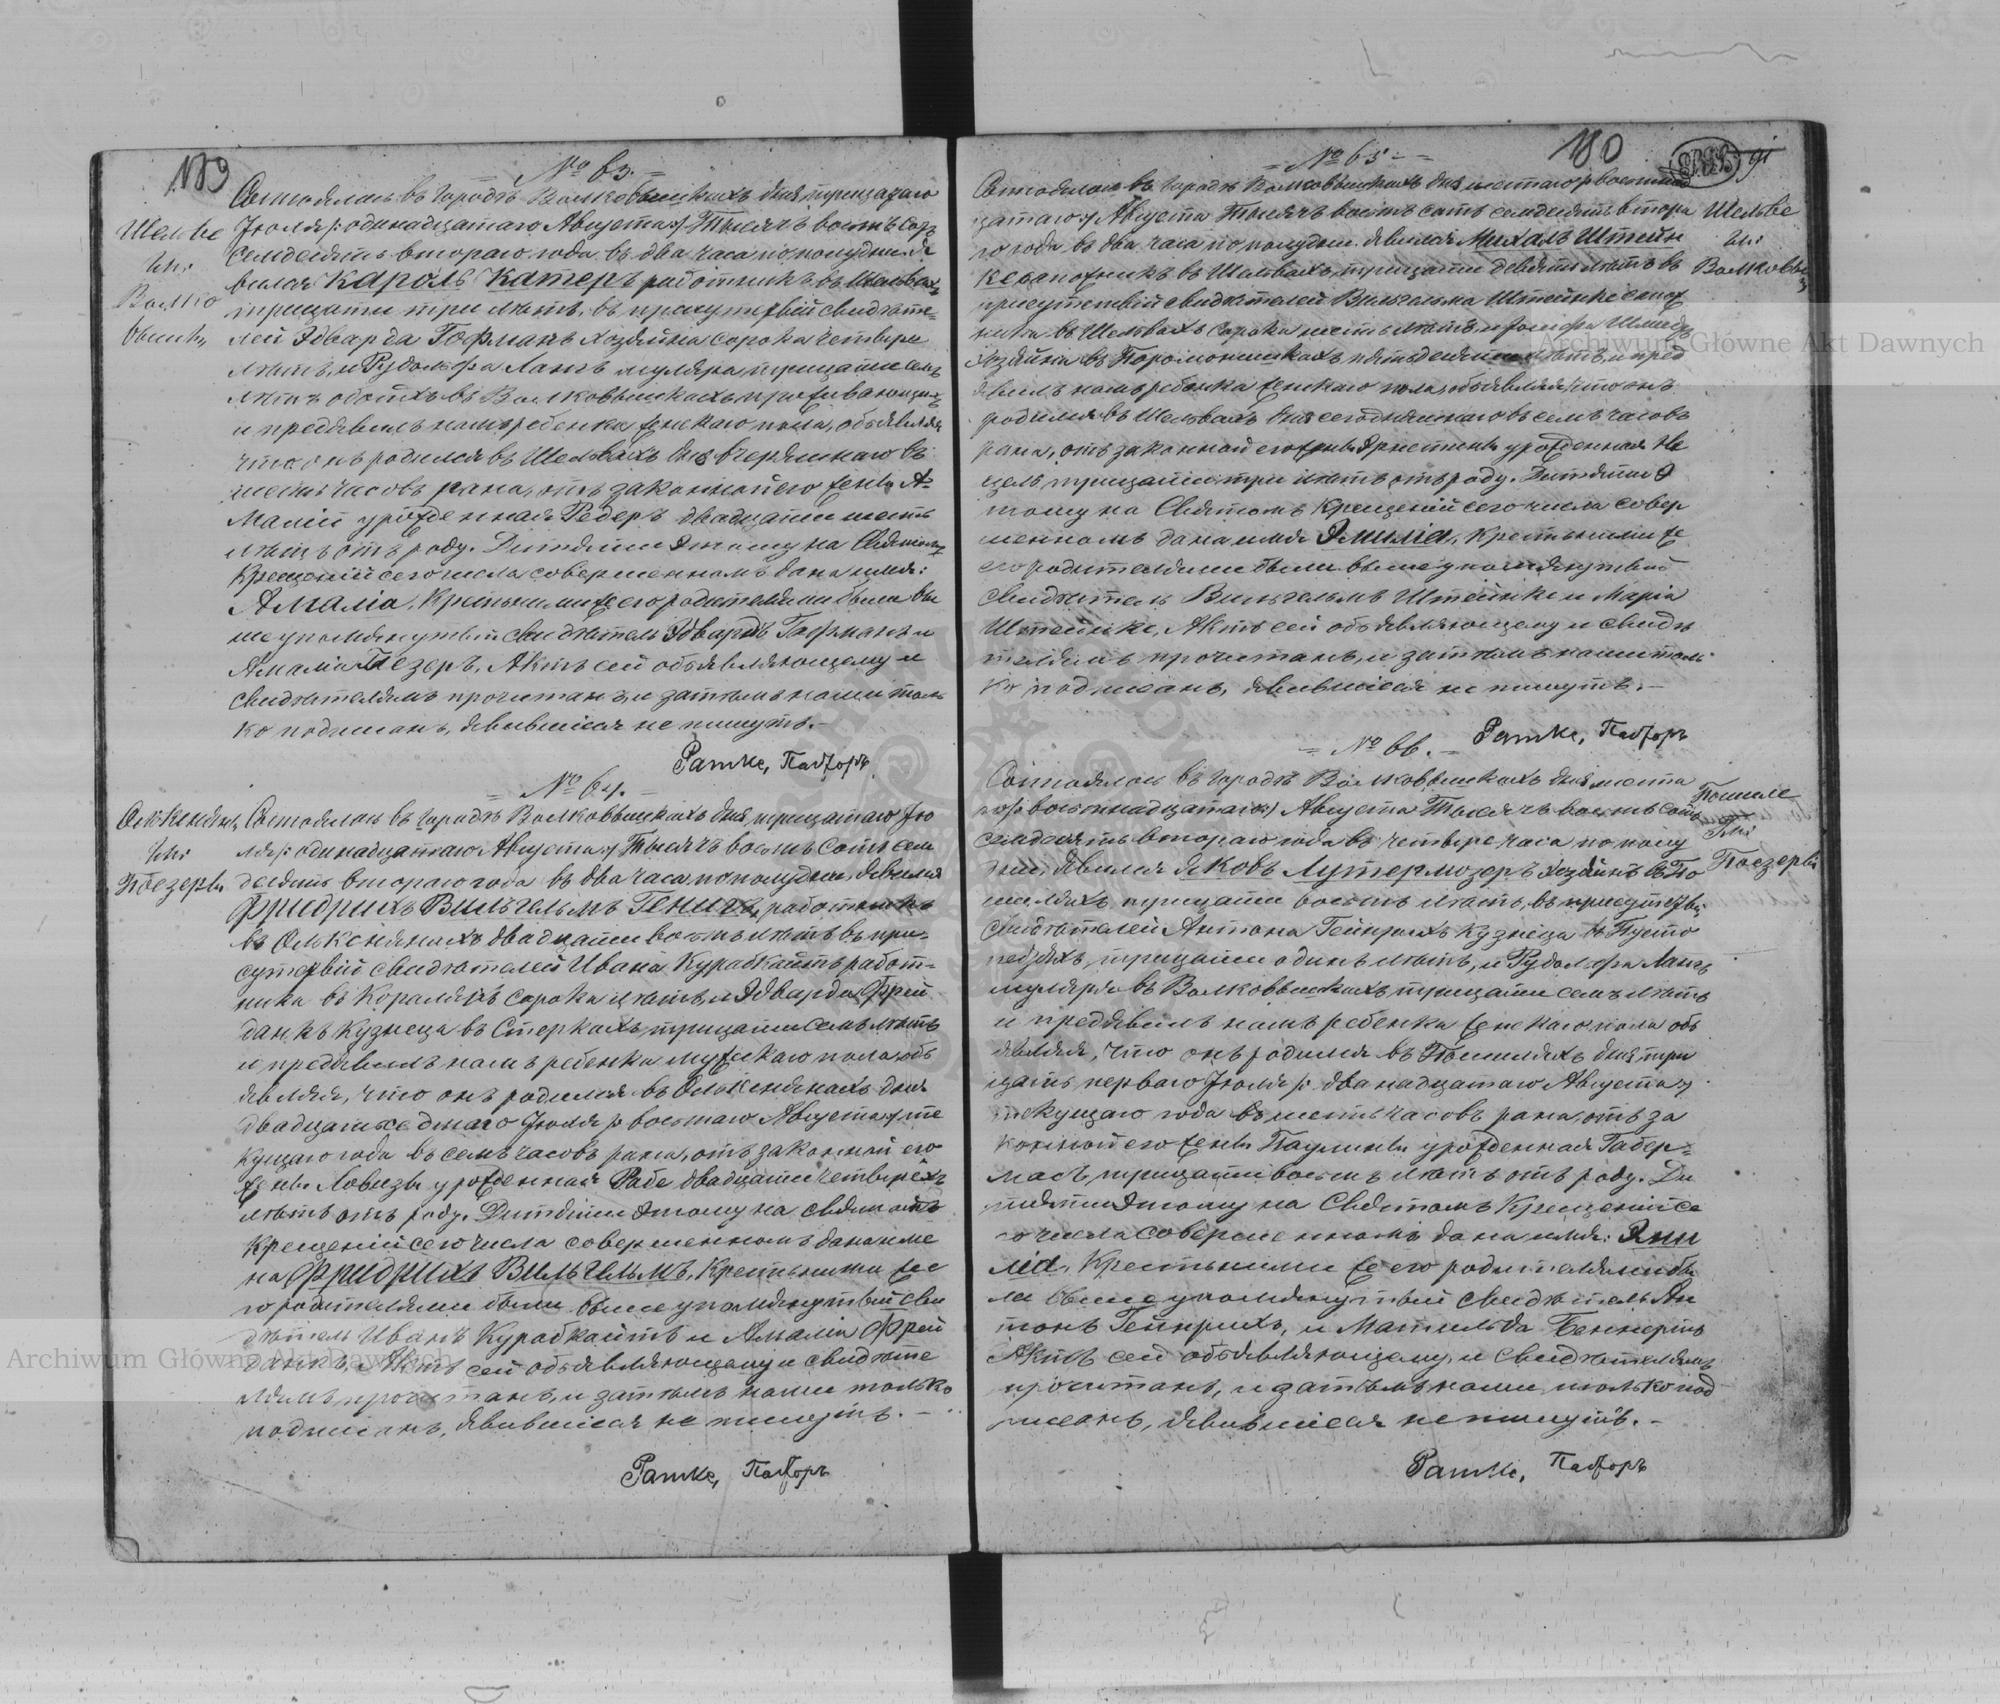 189
№ 63.
Состоялось въ городѣ Волковышкахъ дня тридцатаго
Шельве
Гм:
Волко
вышки
Іюля /: одинадцатаго Августа :/ Тысяча восемь сотъ
семдесять втораго года въ два часа по полудни. Я
вился Кароль Катеръ работникъ въ Шельвахъ
тридцати три лѣтъ, въ присутствіи свидѣте-
лей Эдварда Гофманъ хозяина сорока четыре
лѣтъ, и Рудольфа Лангъ муляра тридцати семь
лѣтъ обоихъ въ Волковышкахъ проживающихъ
и предъявилъ намъ ребенка женскаго пола, объявляя
что онъ родился въ Шельвахъ дня вчерашняго въ
шесть часовъ рана, отъ законной его жены А-
маліи урожденная Редеръ двадцати шесть
лѣтъ отъ роду. Дитяти этому на Святомъ
Крещеніи сего числа совершенномъ дана имя:
Амалія, Крестными же его родителями были вы
шеупомянутый свидѣтель Эдвардъ Гофманъ и
Амалія Гезеръ, Актъ сей объявляющему и
свидѣтелямъ прочитанъ, и затѣмъ нами толь
ко подписанъ, явившіися не пишутъ.-
Ратке, Пасторъ
= № 64. -
Олькеняны
Гм:
Поезеры
Состоялось въ городѣ Волковышкахъ дня тридцатаго Ію
ля /: одинадцатаго Августа :/ Тысяча восемь сотъ сем
десять втораго года въ два часа по полудни, явился
Фридрихъ Вильгельмъ Генигъ, работникъ
въ Олькенянахъ двадцати восемь лѣтъ въ при-
сутствіи свидѣтелей Ивана Курапкайтъ работ-
ника въ сорока лѣтъ, и Эдварда Фрей
данкъ Кузнеца въ Стеркахъ, тридцати семь лѣтъ
и предъявилъ намъ ребенка мужскаго пола, объ
являя, что онъ родился въ Олькенянахъ дня
двадцать седмаго Іюля /: восьмаго Августа :/ те
кущаго года въ семь часовъ рана, отъ законной его
жены Ловизы урожденная Рабе двадцати четырехъ
лѣтъ отъ роду. Дитяти этому на Святомъ
Крещеніи сего числа совершенномъ дана име
на Фридрихъ Вильгельмъ, Крестными же е
го родителями были вышеупомянутый сви
дѣтель Иванъ Курапкайтъ и Амалія Фрей
данкъ, Актъ сей объявляющему и свидѣте
лямъ прочитанъ, и затѣмъ нами только
подписанъ, явившіися не пишутъ. -
Ратке, Пасторъ
180
91
= № 65 - =
Состоялось въ городѣ Волковышкахъ дня шестаго /: восемнад
Шельве
Гм:
Волковы
цатаго :/ Августа Тысяча восемь сотъ семдесять втора
го года въ два часа по полудни. Явился Михалъ Штейн
ке сапожникъ въ Шельвахъ, тридцати девять лѣтъ въ
присутствіи свидѣтелей Вильгельма Штейнке сапож
ника въ Шельвахъ сорока шесть лѣтъ, и Шмидъ
хозяина въ лѣтъ, и пред
явилъ намъ ребенка женскаго пола, объявляя что онъ
родился въ Шельвахъ дня сегодняшнаго въ семь часовъ
рана, отъ законной его жены Эрнестины урожденная Не
цель тридцати три лѣтъ отъ роду. Дитяти э
тому на Святомъ Крещеніи сего числа совер
шенномъ дана имя Эмилія, Крестными же
его родителями были вышеупомянутый
свидѣтель Вильгельмъ Штейнке и Марія
Штейнке, Актъ сей объявляющему и свидѣ
телямъ прочитанъ, и затѣмъ нами толь-
ко подписанъ, явившіися не пишутъ. -
Ратке, Пасторъ
= № 66. -
Состоялось въ городѣ Волковышкахъ дня шеста
Пошиле
Гм:
Поезеры
го /: восемнадцатаго :/ Августа Тысяча восемь сотъ
семдесять втораго года въ четыре часа по полу
дни, явился Яковъ Лутермозеръ хозяинъ въ По
шиляхъ, тридцати восемь лѣтъ, въ присутствіи
свидѣтелей Антона Гейнрихъ Кузнеца въ Пусто
тридцати одинъ лѣтъ, и Рудольфа Лангъ
муляра въ Волковышкахъ тридцати семь лѣтъ
и предъявилъ намъ ребенка женскаго пола объ
являя, что онъ родился въ Пошиляхъ дня три
дцать перваго Іюля /: двѣнадцатаго Августа :/
текущаго года въ шесть часовъ рана, отъ за
конной его жены Паулины урожденная Габер-
масъ, тридцати восемь лѣтъ отъ роду. Ди
тяти этому на Святомъ Крещеніи се
го числа совершенномъ дана имя: Эми
лія, Крестными же его родителями бы
ли вышеупомянутый свидѣтель Ан
тонъ Гейнрихъ, и Матильда Беннертъ
Актъ сей объявляющему, и свидѣтелямъ
прочитанъ, и затѣмъ нами только под
писанъ, явившіися не пишутъ. -
Ратке, Пасторъ
Archiwum Główne Akt Dawnych
Archiwum Główne Akt Dawnych